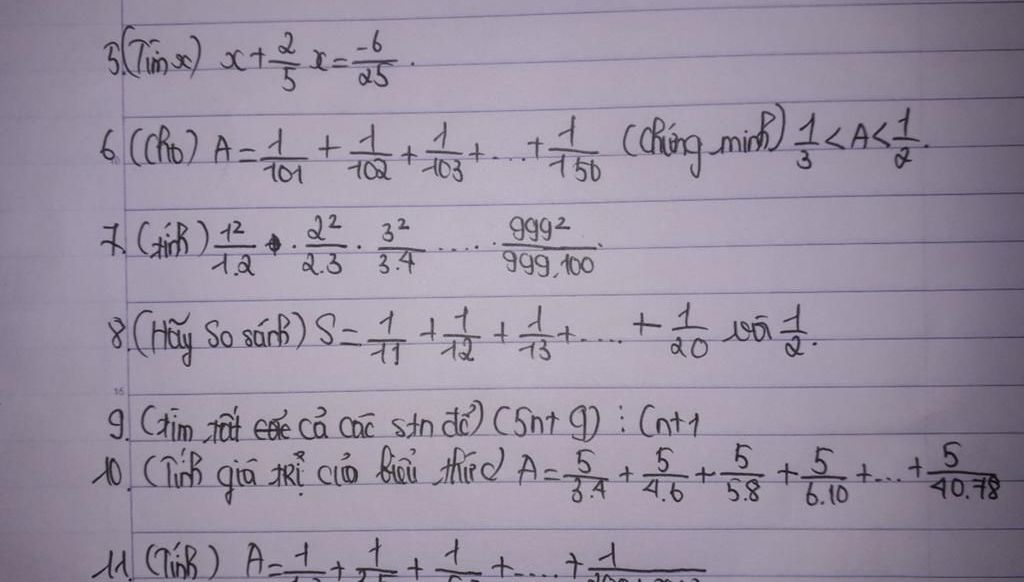 5. (Tìm x) x + 2/5 x = -6/25.
6. (Cho) A = 1/101 + 1/102 + 1/103 + ... + 1/150 (Chứng minh) 1/3 < A < 1/2.
7. (tính) 1²/1.2 . 2²/2.3 . 3²/3.4 ..... 999²/999.100
8. (Hãy so sánh) S = 1/11 + 1/12 + 1/13 + .... + 1/20 với 1/2.
9. (tìm tất cả các stn để) (5n + 9) ⋮ (n+1
10. (Tính giá trị của biểu thức) A = 5/3.4 + 5/4.6 + 5/5.8 + 5/6.10 + ... + 5/40.78
11. (Tính) A = 1/ + 1/ + 1/ + .... + 1/